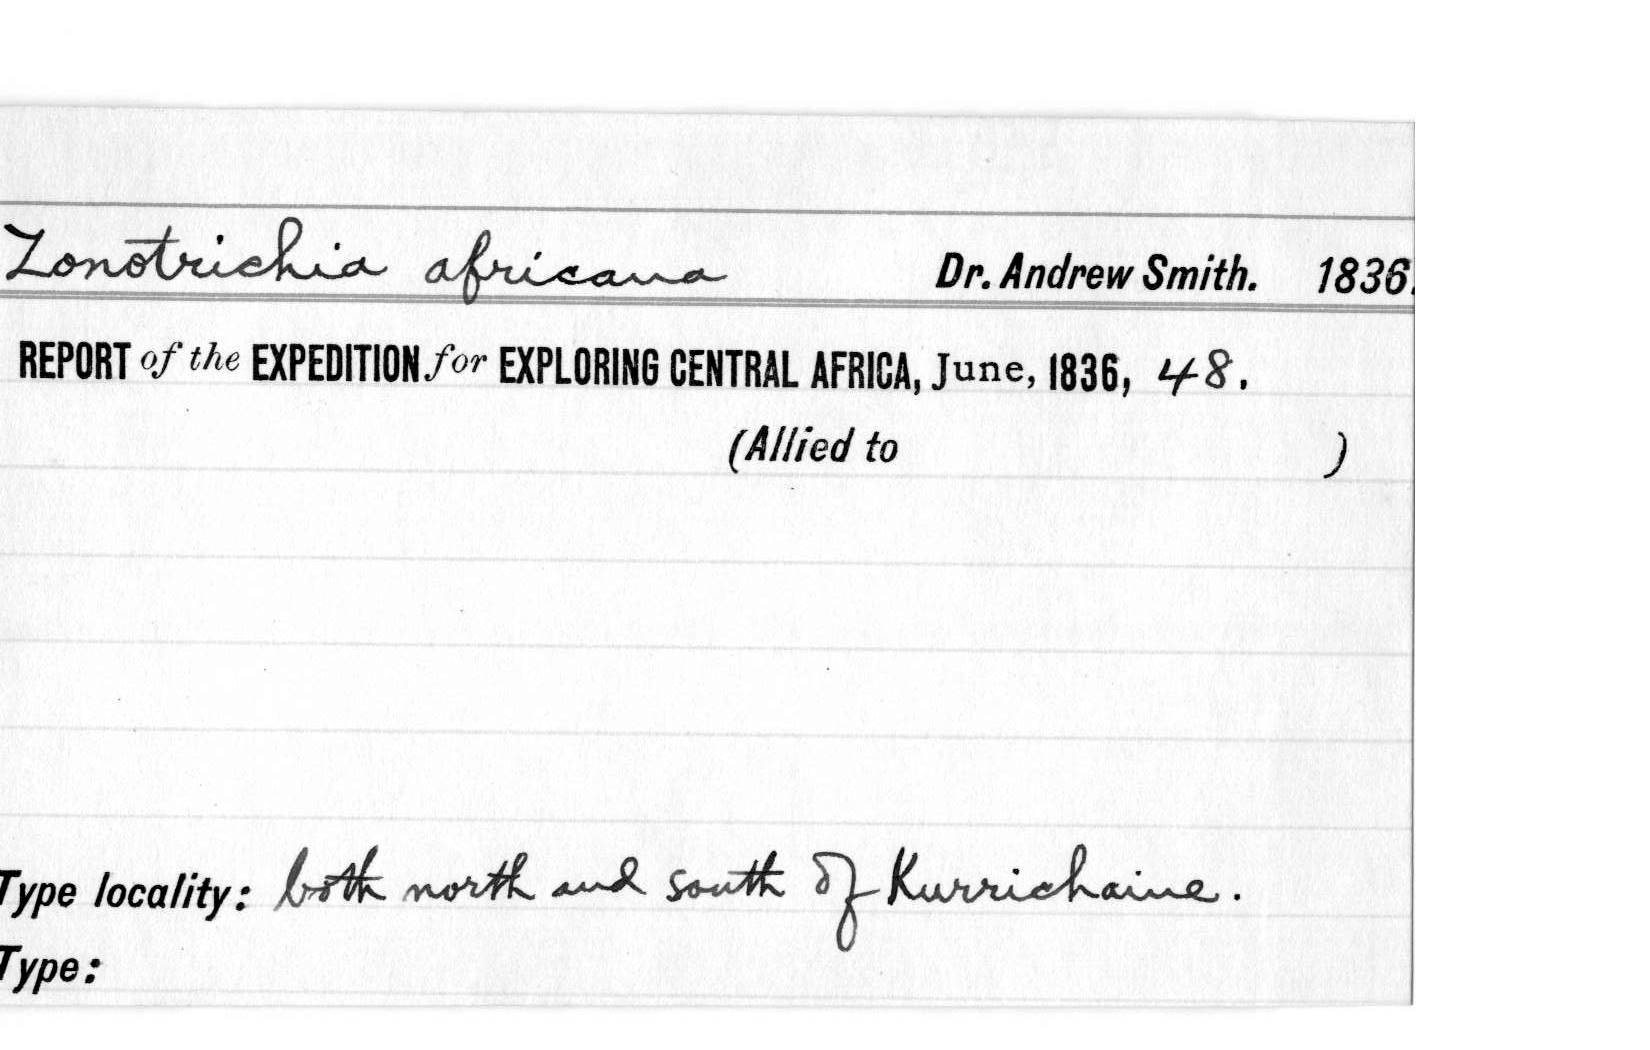 Zonotrichia africana Dr. Andrew Smith. 1836.
REPORT of the EXPEDITION for EXPLORING CENTRAL AFRICA, June, 1836, 48.
(Allied to )
Type locality: both north and south of Kurrichaine.
Type: